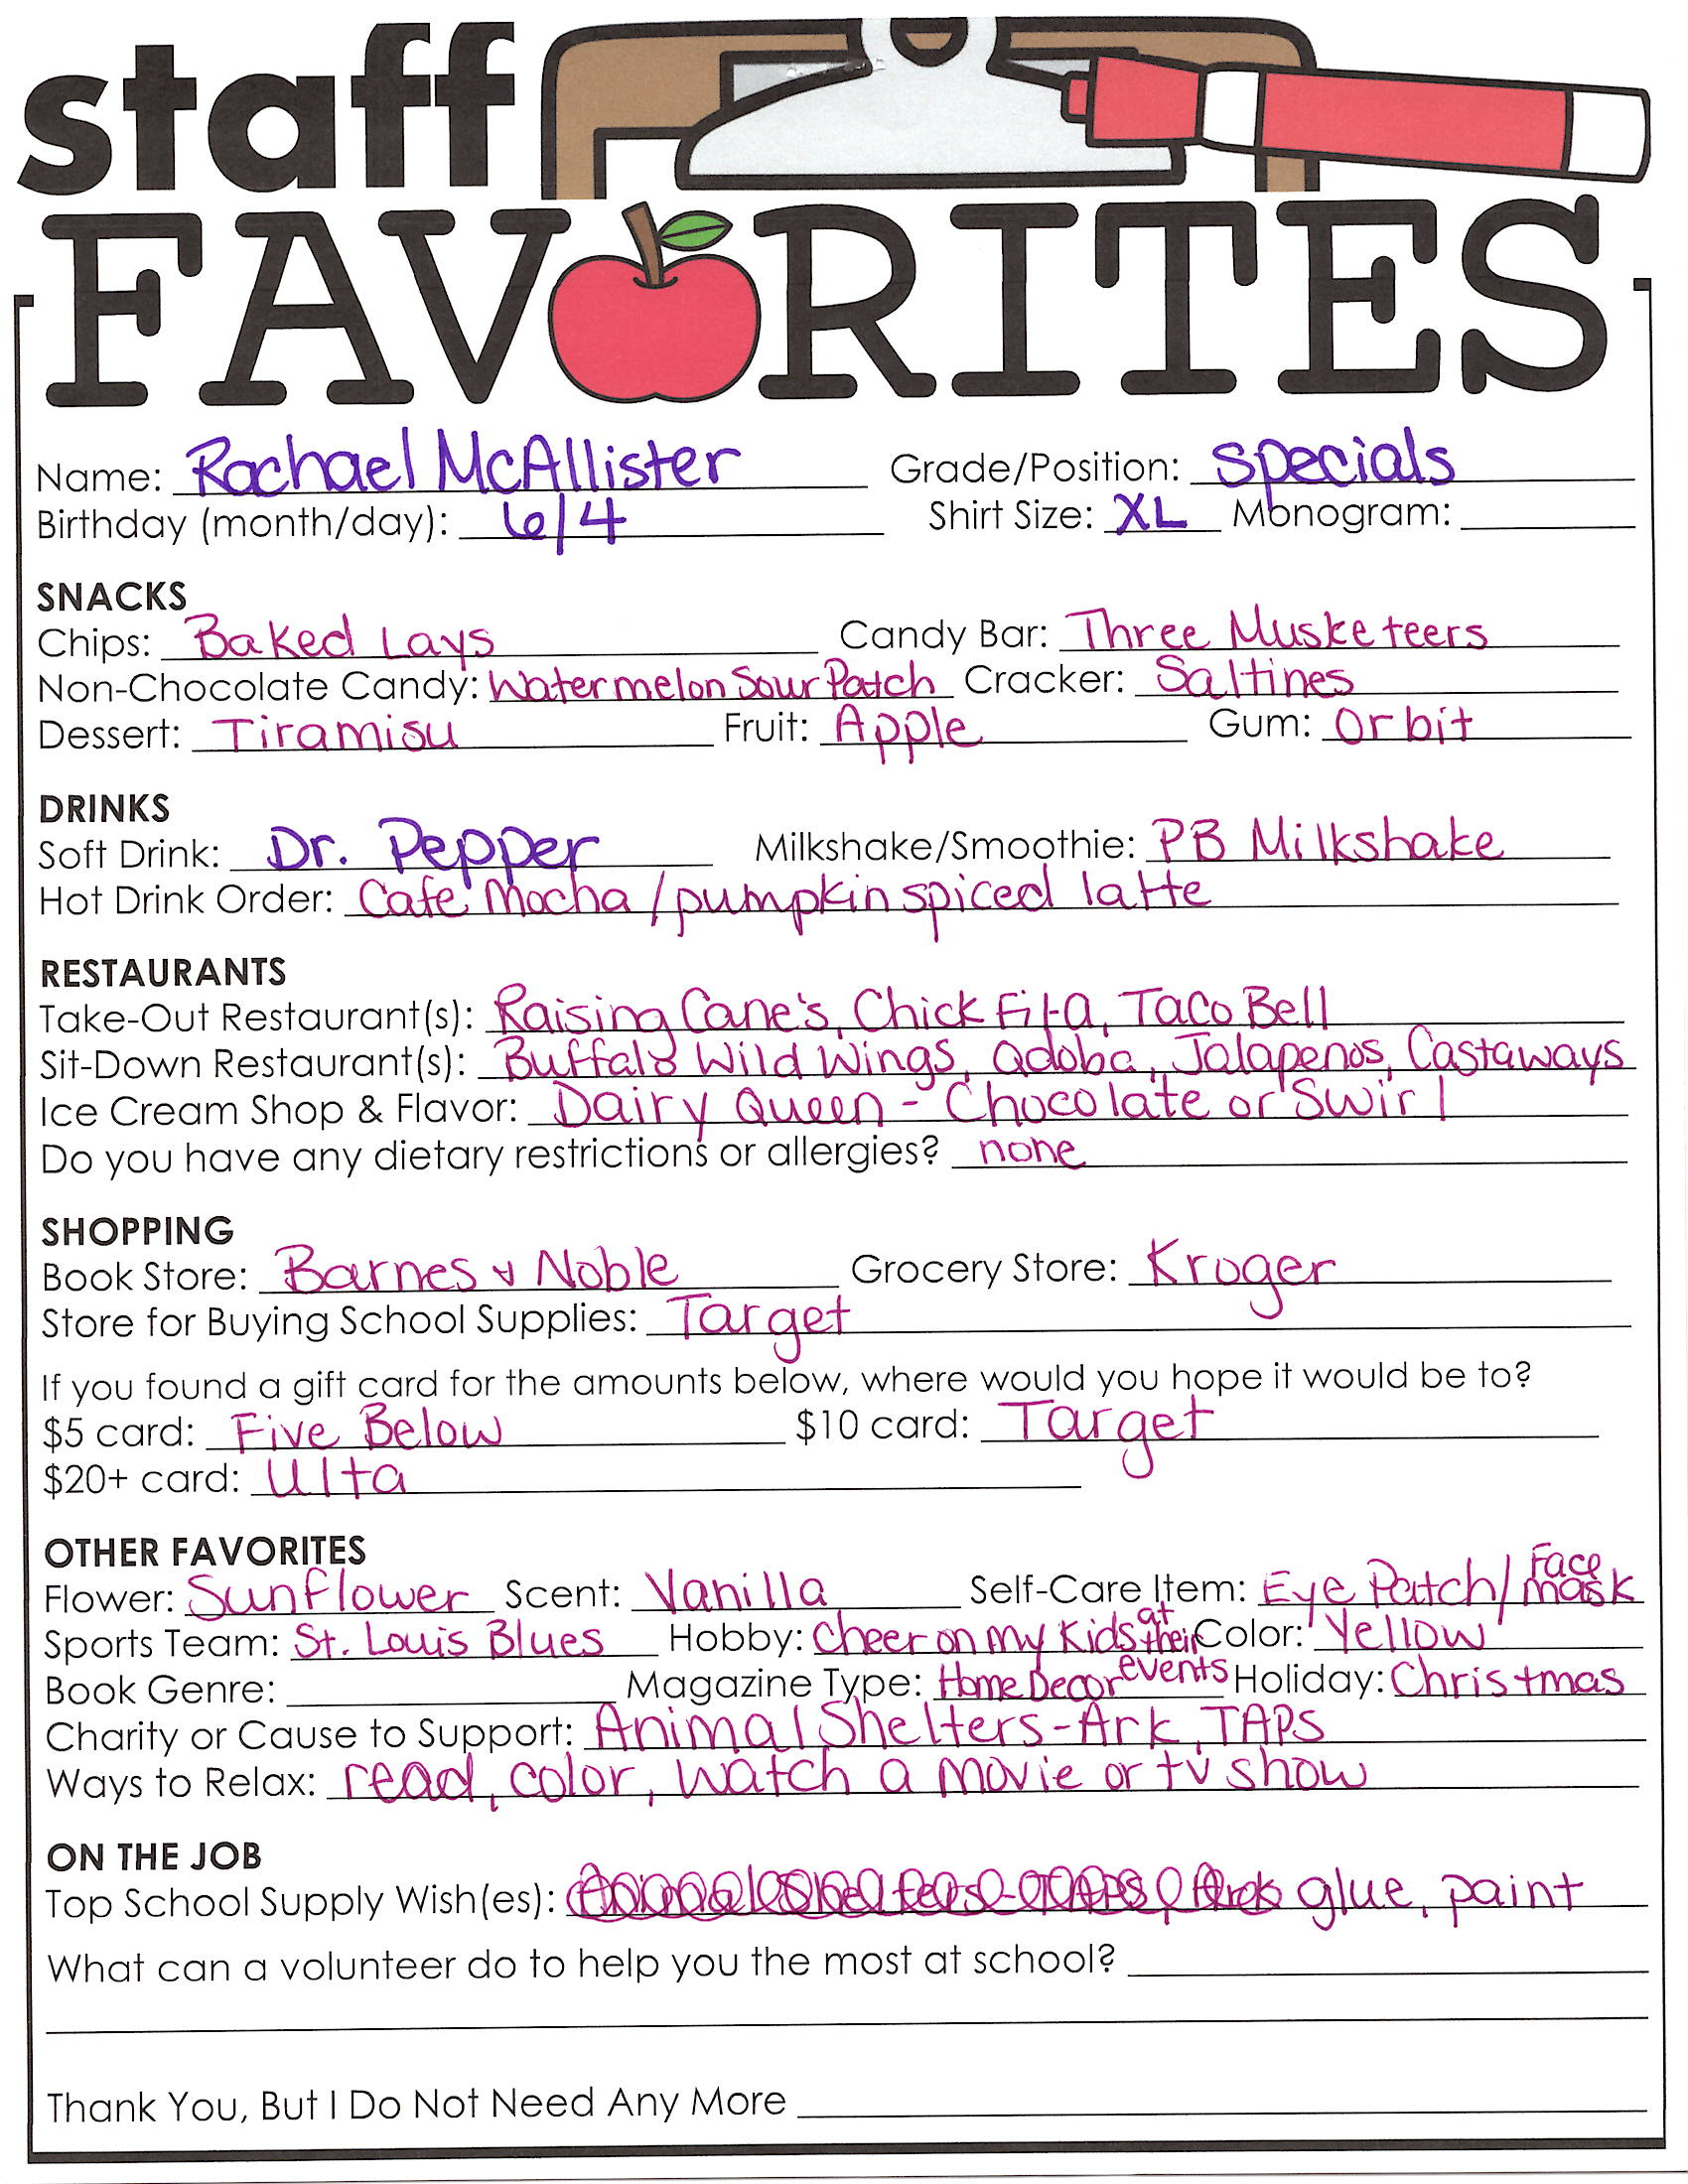 staff
FAVORITES
Name: Rachael McAllister Grade/Position: Specials
Birthday (month/day): 6/4 Shirt Size: XL Monogram:
SNACKS
Chips: Baked Lays Candy Bar: Three Musketeers
Non-Chocolate Candy: Watermelon Sour Patch Cracker: Saltines
Dessert: Tiramisu Fruit: Apple Gum: Orbit
DRINKS
Soft Drink: Dr. Pepper Milkshake/Smoothie: PB Milkshake
Hot Drink Order: Cafe Mocha / pumpkin spiced latte
RESTAURANTS
Take-Out Restaurant(s): Raising Cane's, Chick Fil-A, Taco Bell
Sit-Down Restaurant(s): Buffalo Wild Wings, Qdoba, Jalapenos, Castaways
Ice Cream Shop & Flavor: Dairy Queen - Chocolate or Swirl
Do you have any dietary restrictions or allergies? none
SHOPPING
Book Store: Barnes & Noble Grocery Store: Kroger
Store for Buying School Supplies: Target
If you found a gift card for the amounts below, where would you hope it would be to?
$5 card: Five Below $10 card: Target
$20+ card: Ulta
OTHER FAVORITES
Flower: Sunflower Scent: Vanilla Self-Care Item: Eye Patch/ Face mask
Sports Team: St. Louis Blues Hobby: Cheer on my kids at their events Color: Yellow
Book Genre: Magazine Type: Home Decor Holiday: Christmas
Charity or Cause to Support: Animal Shelters-Ark, TAPS
Ways to Relax: read, color, watch a movie or tv show
ON THE JOB
Top School Supply Wish(es): Animal Shelters - TAPS, Ark glue, paint
What can a volunteer do to help you the most at school?
Thank You, But I Do Not Need Any More